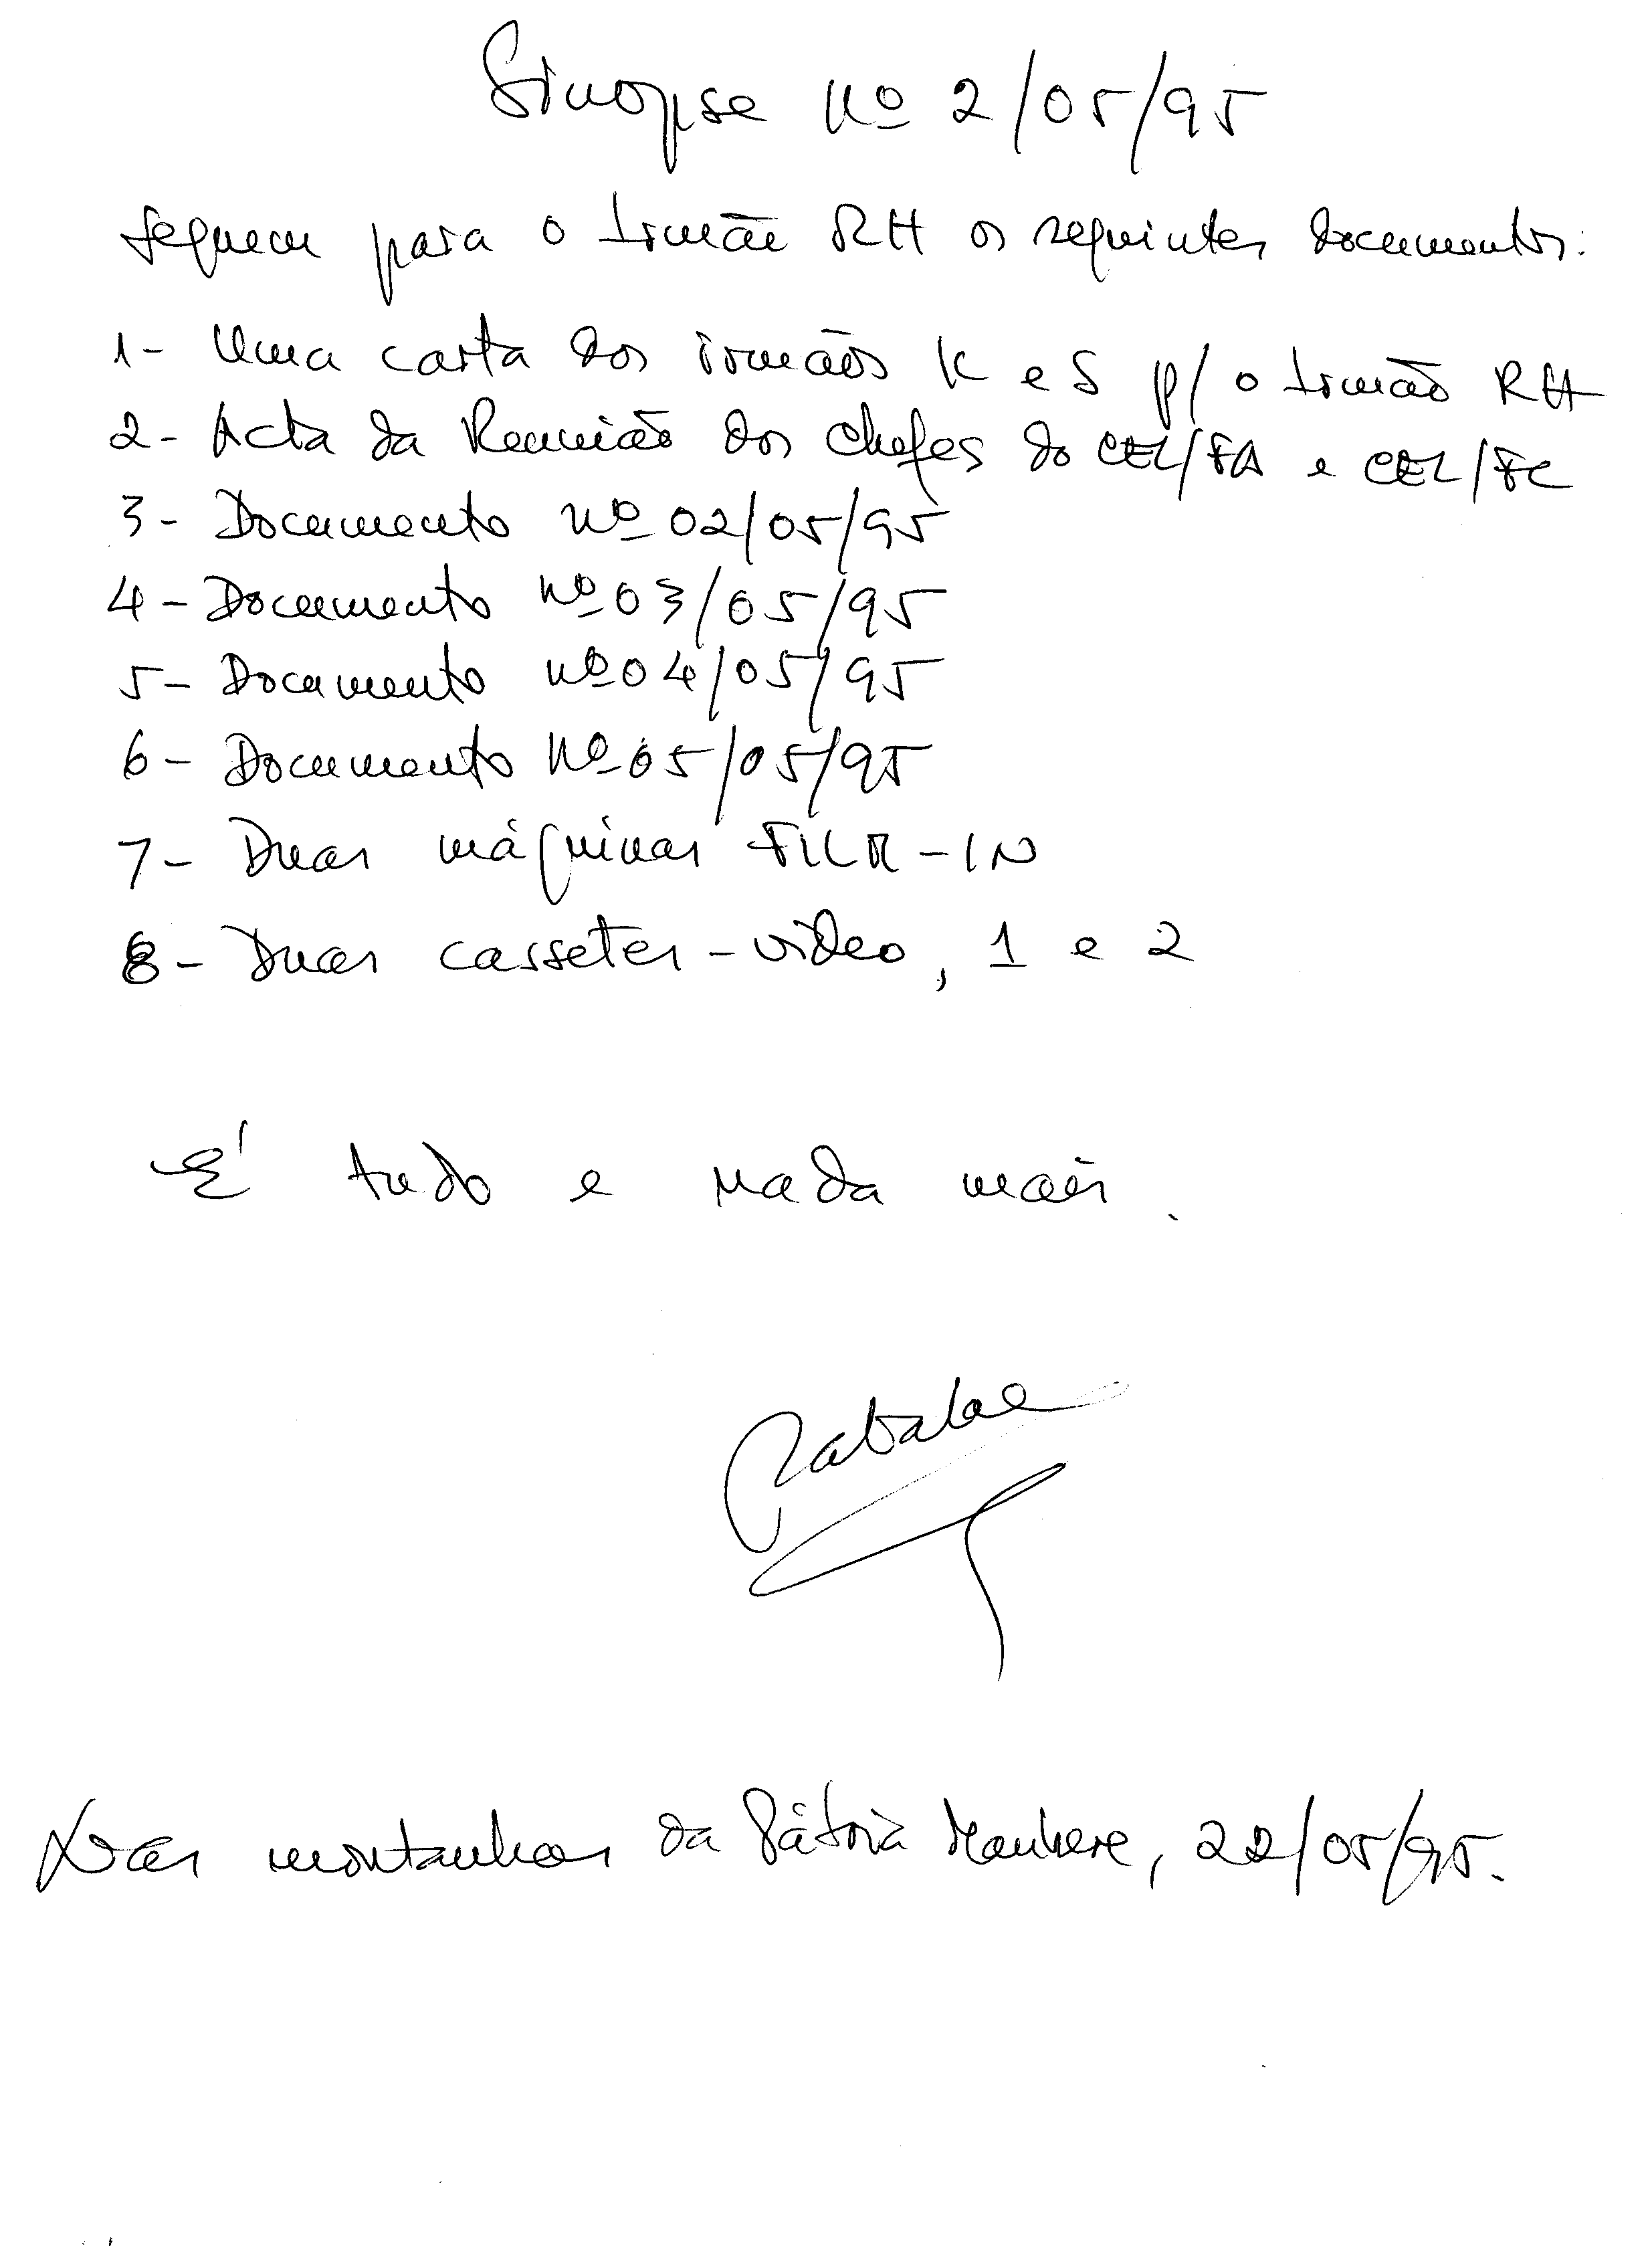 Sinopse nº 2/05/95
Seguem para o Irmão RH os seguintes documentos:
1- Uma carta dos irmãos K e S p/ o Irmão RH
2- Acta da Reunião dos chefes do CEL/FA e CEL/FC
3- Documento nº 02/05/95
4- Documento nº 03/05/95
5- Documento nº 04/05/95
6- Documento nº 05/05/95
7- Duas máquinas
8- Duas cassetes-video, 1 e 2
É tudo e nada mais.
Nas montanhas da Pátria Maubere, 22/05/95.